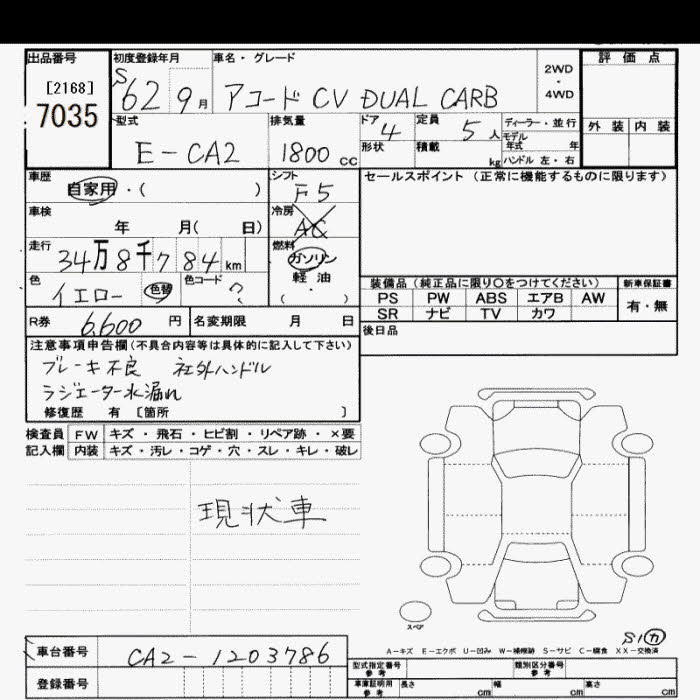 出品番号 初度登録年月 車名・グレード 評価点
[2168] S62 9月 アコード CV DUAL CARB 2WD ・ 4WD
7035 外装 内装
型式 排気量 ドア 定員 ディーラー・並行
E-CA2 1800cc 4 5人 モデル年式 年
形状 積載 kg ハンドル 左・右
車歴 シフト セールスポイント(正常に機能するものに限ります)
自家用・( ) F5
車検 冷房
年 月( 日) AC
走行 燃料
34万8千784km ガソリン
色 色コード 軽油
イエロー 色替 ? ( )
装備品(純正品に限り○をつけてください) 新車保証書
PS PW ABS エアB AW 有・無
SR ナビ TV カワ
R券 6,600円 名変期限 月 日 後日品
注意事項申告欄(不具合内容等は具体的に記入して下さい)
ブレーキ不良 社外ハンドル
ラジエーター水漏れ
修復歴 有 [箇所 ]
検査員 FW キズ・飛石・ヒビ割・リペア跡・×要
記入欄 内装 キズ・汚レ・コゲ・穴・スレ・キレ・破レ
現状車
スペア
S1カ
A-キズ E-エクボ U-凹み W-補修跡 S-サビ C-腐食 XX-交換済
車台番号 CA2-1203786
型式指定番号 参考 類別区分番号 参考
登録番号
車庫証明用 参考 長さ cm 幅 cm 高さ cm